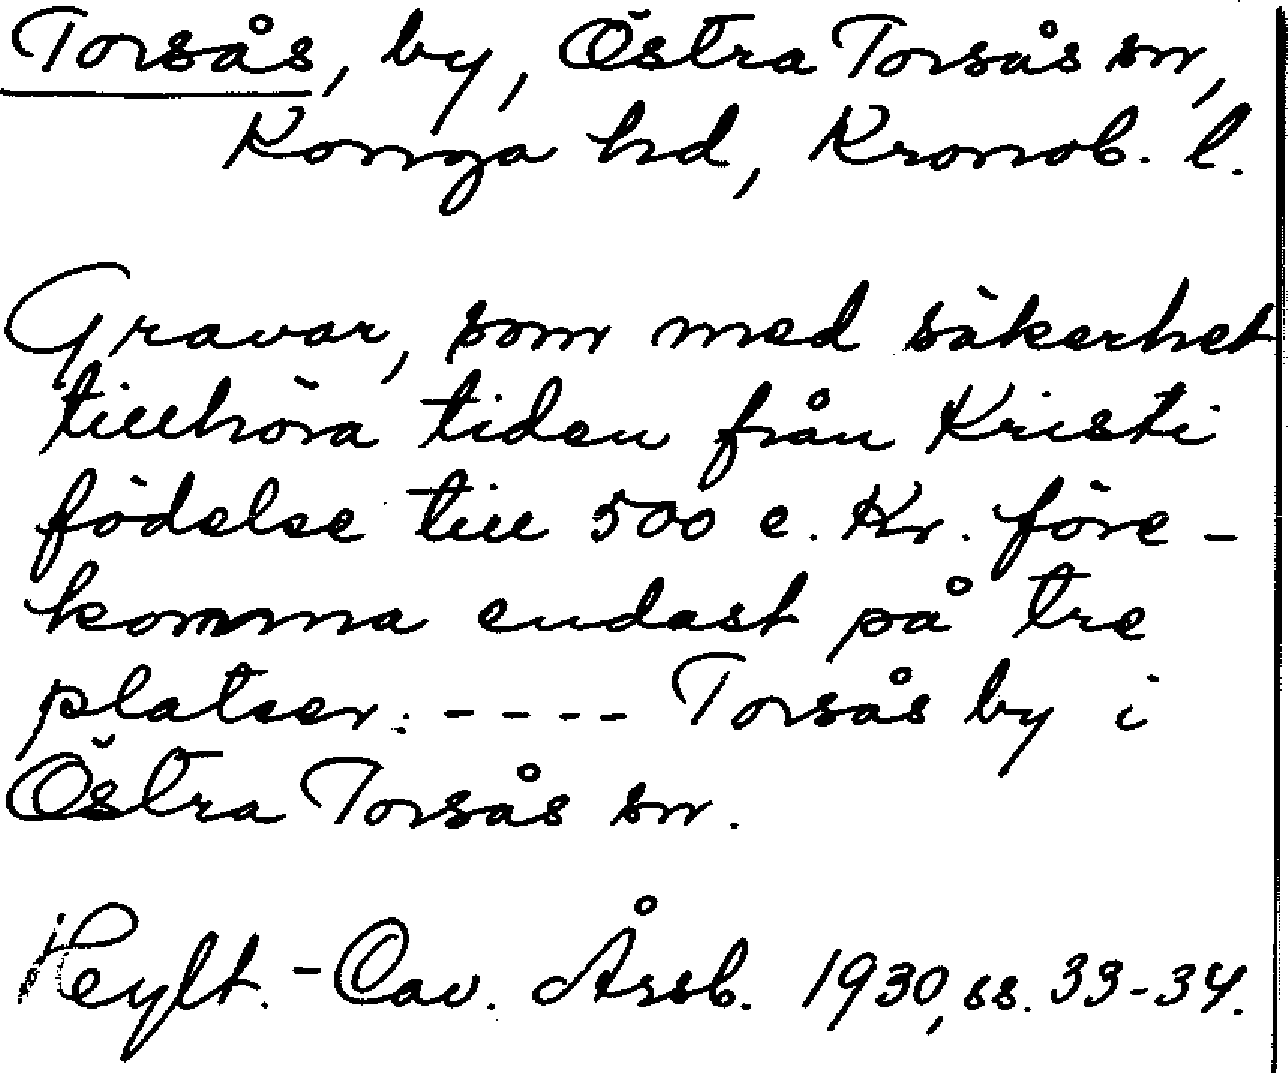 Torsås, by, Östra Torsås sn,
Konga hd, Kronob. l.
Gravar, som med säkerhet
tillhöra tiden från Kristi
födelse till 500 e. Kr. före-
komma endast på tre
platser: ---- Torsås by i
Östra Torsås sn.
Heylt.-Cav. Årsb. 1930, ss. 33-34.